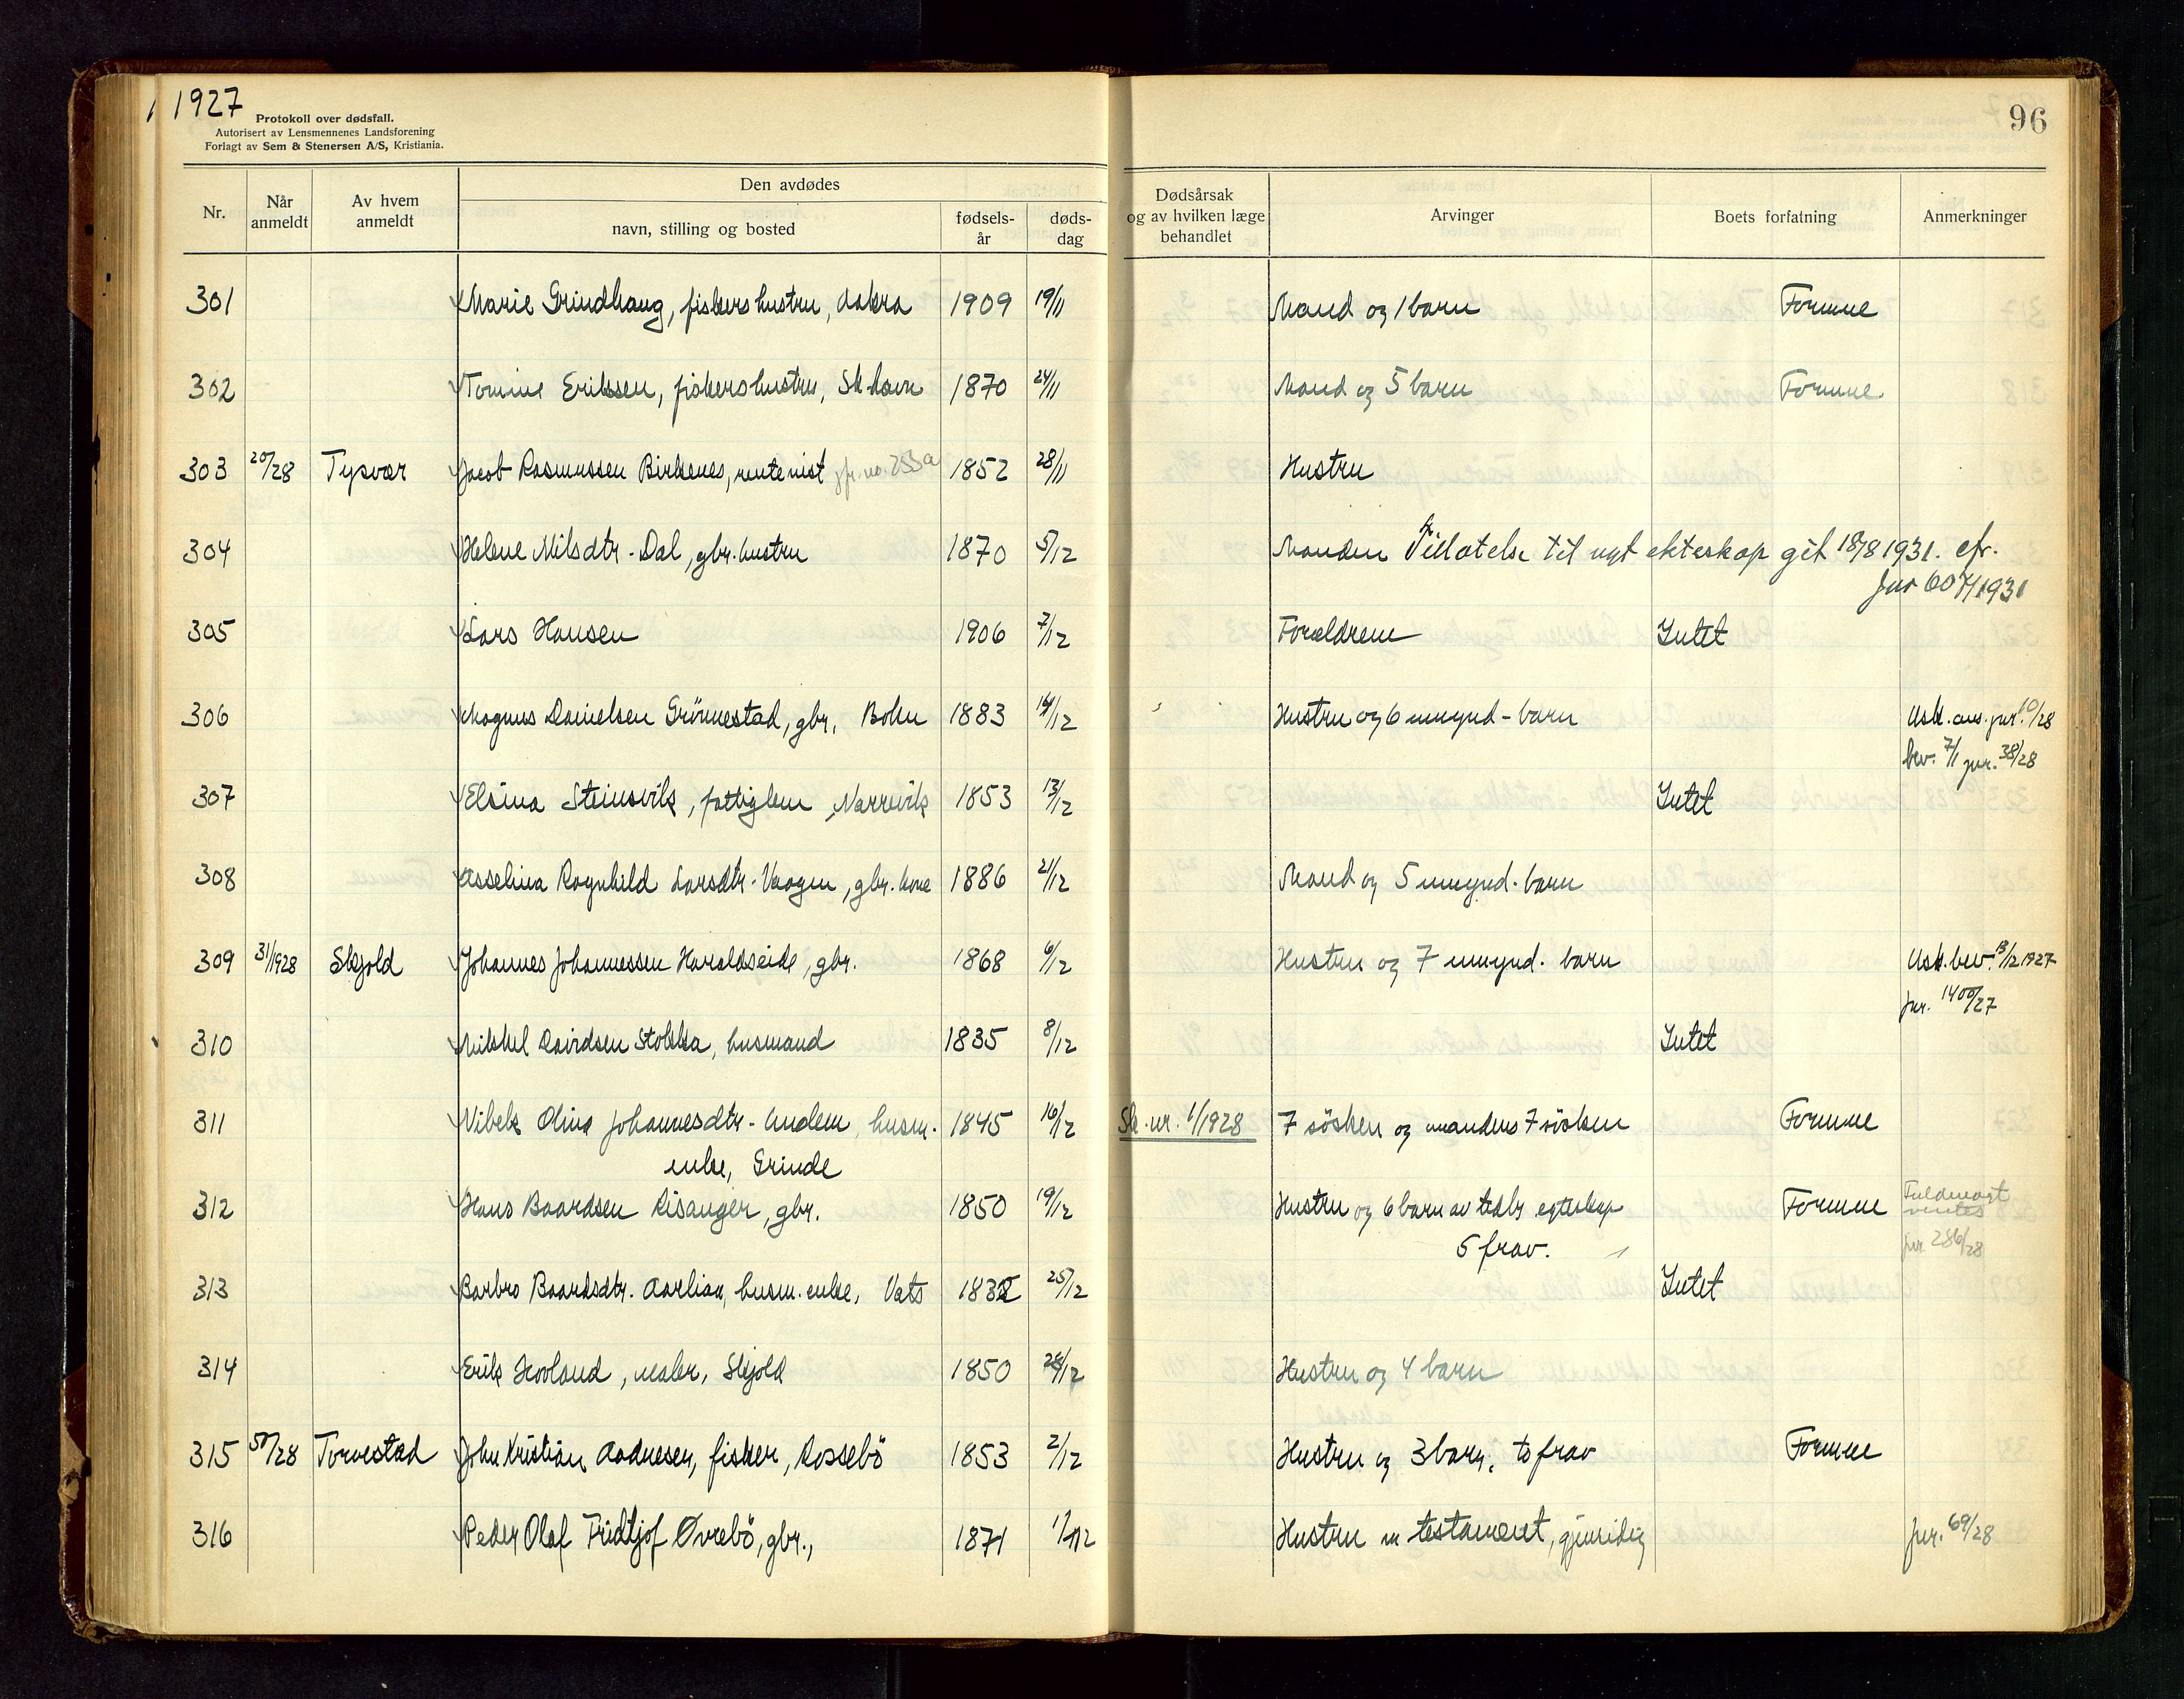 1927
Protokoll over dødsfall.
Autorisert av Lensmennenes Landsforening
Forlagt av Sem & Stenersen A/S, Kristiania.
96
Nr. Når anmeldt Av hvem anmeldt Den avdødes navn, stilling og bosted fødsels-år døds-dag Dødsårsak og av hvilken læge behandlet Arvinger Boets forfatning Anmerkninger
301 Marie Grindhaug, fiskers hustru, Aakra 1909 19/11 Mand og 1 barn Formue
302 Tomine Eriksen, fiskers hustru, Sk.havn 1870 24/11 Mand og 5 barn Formue
303 20/28 Tysvær Jacob Rasmussen Birkenes, rentenist jfr. no. 253a 1852 28/11 Hustru
304 Helene Nilsdtr. Dal, gbr. hustru 1870 5/12 Manden Tillatelse til nyt ekteskap git 18/8 1931. cfr.
jnr 607/1931
305 Lars Hansen 1906 7/12 Forældrene Intet
306 Magnus Danielsen Grönnestad, gbr, Bokn 1883 14/12 Hustru og 6 umynd. barn Usk. ans. jnr. 10/28
bev. 7/1 jnr. 38/28
307 Elsina Steinsvik, fattiglem, Narrevik 1853 13/12 Intet
308 Asselina Ragnhild Larsdtr. Vaagen, gbr. kone 1886 21/12 Mand og 5 umynd. barn
309 31/1928 Skjold Johannes Johannessen Haraldseide, gbr. 1868 6/12 Hustru og 7 umynd. barn Usk. bev. 13/12 1927
jnr. 1400/27
310 Mikkel Davidsen Stakka, husmand 1835 8/12 Intet
311 Vibeke Olina Johannesdtr. husm. 1845 16/12 Sk. nr. 1/1928 7 sösken og mandens 7 söskem Formue
enke, Grinde
312 Hans Baardsen Risanger, gbr. 1850 19/12 Hustru og 6 barn av tidlr egteskap Formue Fuldmagt
ventes
5 frav. jnr. 286/28
313 Barbro Baardsdtr. Aarlian, husm. enke, Vats 1832 25/12 Intet
314 Erik Hovland, maler, Skjold 1850 28/12 Hustru og 4 barn
315 50/28 Torvestad John Kristian Aadnesen, fisker, Rossebö 1853 2/12 Hustru og 3 barn, to frav Formue
316 Peder Olaf Fridtjof Øvrebö, gbr., 1871 1/12 Hustru m testament, gjensidig jnr. 69/28